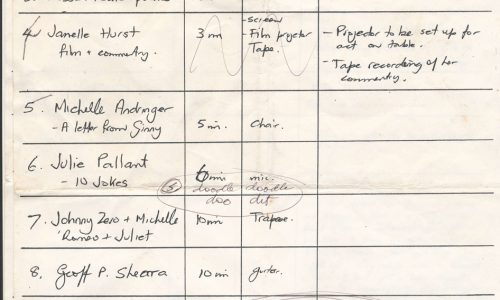 4 Janelle Hurst
Film + commentry.
3 min
- screen
- Film projector
Tape.
- Projector to be set up for
act on table.
- Tape recording of her
commentry.
5. Michelle Andringer
- A letter from Ginny
5 min.
Chair.
6. Julie Pallant
- 10 Jokes
6 min
mic.
5
doodle doodle
doo det
7. Johnny Zero + Michelle
'Romeo + Juliet
10 min
8. Geoff P. Shearra
10 min
guitar.